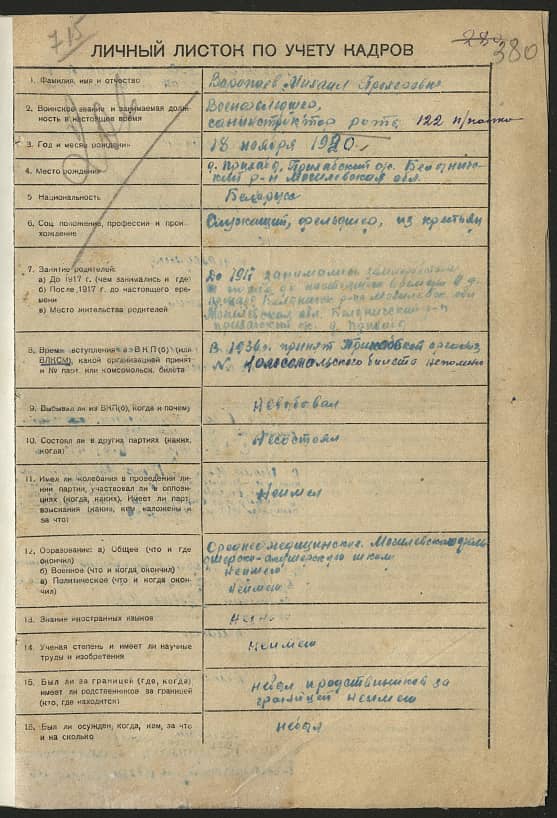 715
380
380
ЛИЧНЫЙ ЛИСТОК ПО УЧЕТУ КАДРОВ
1. Фамилия, имя и отчество
Михаил
2. Воинское звание и занимаемая долж-
ность в настоящее время
Военфельдшер,
санинструктор роты 122 п/полка
3. Год и месяц рождения
18 ноября 1920 г.
4. Место рождения
Могилевская обл.
5 Национальность
Беларус
6. Соц. положение, профессия и проис-
хождение
Служащий, фельдшер, из крестьян
7. Занятие родителей:
а) До 1917 г. (чем занимались и где)
б) После 1917 г. до настоящего вре-
мени
в) Место жительства родителей
До 1917 занимались
8. Время вступления в ВКП(б) (или
ВЛКСМ), какой организацией принят
и № парт. или комсомольск. билета
В 1936г. принят
№ комсомольского билета непомню
9. Выбывал ли из ВКП(б), когда и почему
Невыбывал
10. Состоял ли в других партиях (каких,
когда)
Несостоял
11. Имел ли колебания в проведении ли-
нии партии, участвовал ли в оппози-
циях (когда, каких). Имеет ли парт.
взыскания (какие, кем наложены и
за что)
Неимел
12. Образование: а) Общее (что и где
окончил)
б) Военное (что и когда окончил)
в) Политическое (что и когда окон-
чил)
Среднее медицинское. Могилевская фельд-
шерско-акушерскую школ
неимею
неимею
13. Знание иностранных языков
14. Ученая степень и имеет ли научные
труды и изобретения
неимею
15. Был ли за границей (где, когда)
имеет ли родственников за границей
(кто, где находится)
небыл родственников за
границей неимею
16. Был ли осужден, когда, кем, за что
и на сколько
небыл